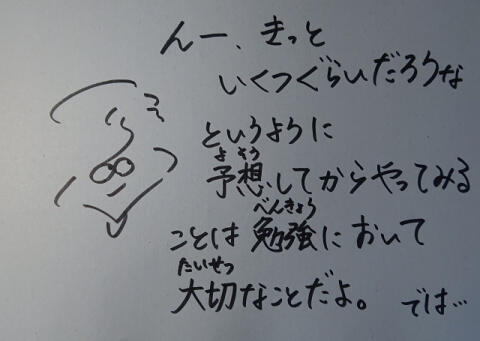 んー、きっと
いくつぐらいだろうな
というように
よそう
予想してからやってみる
べんきょう
ことは勉強において
たいせつ
大切なことだよ。では…